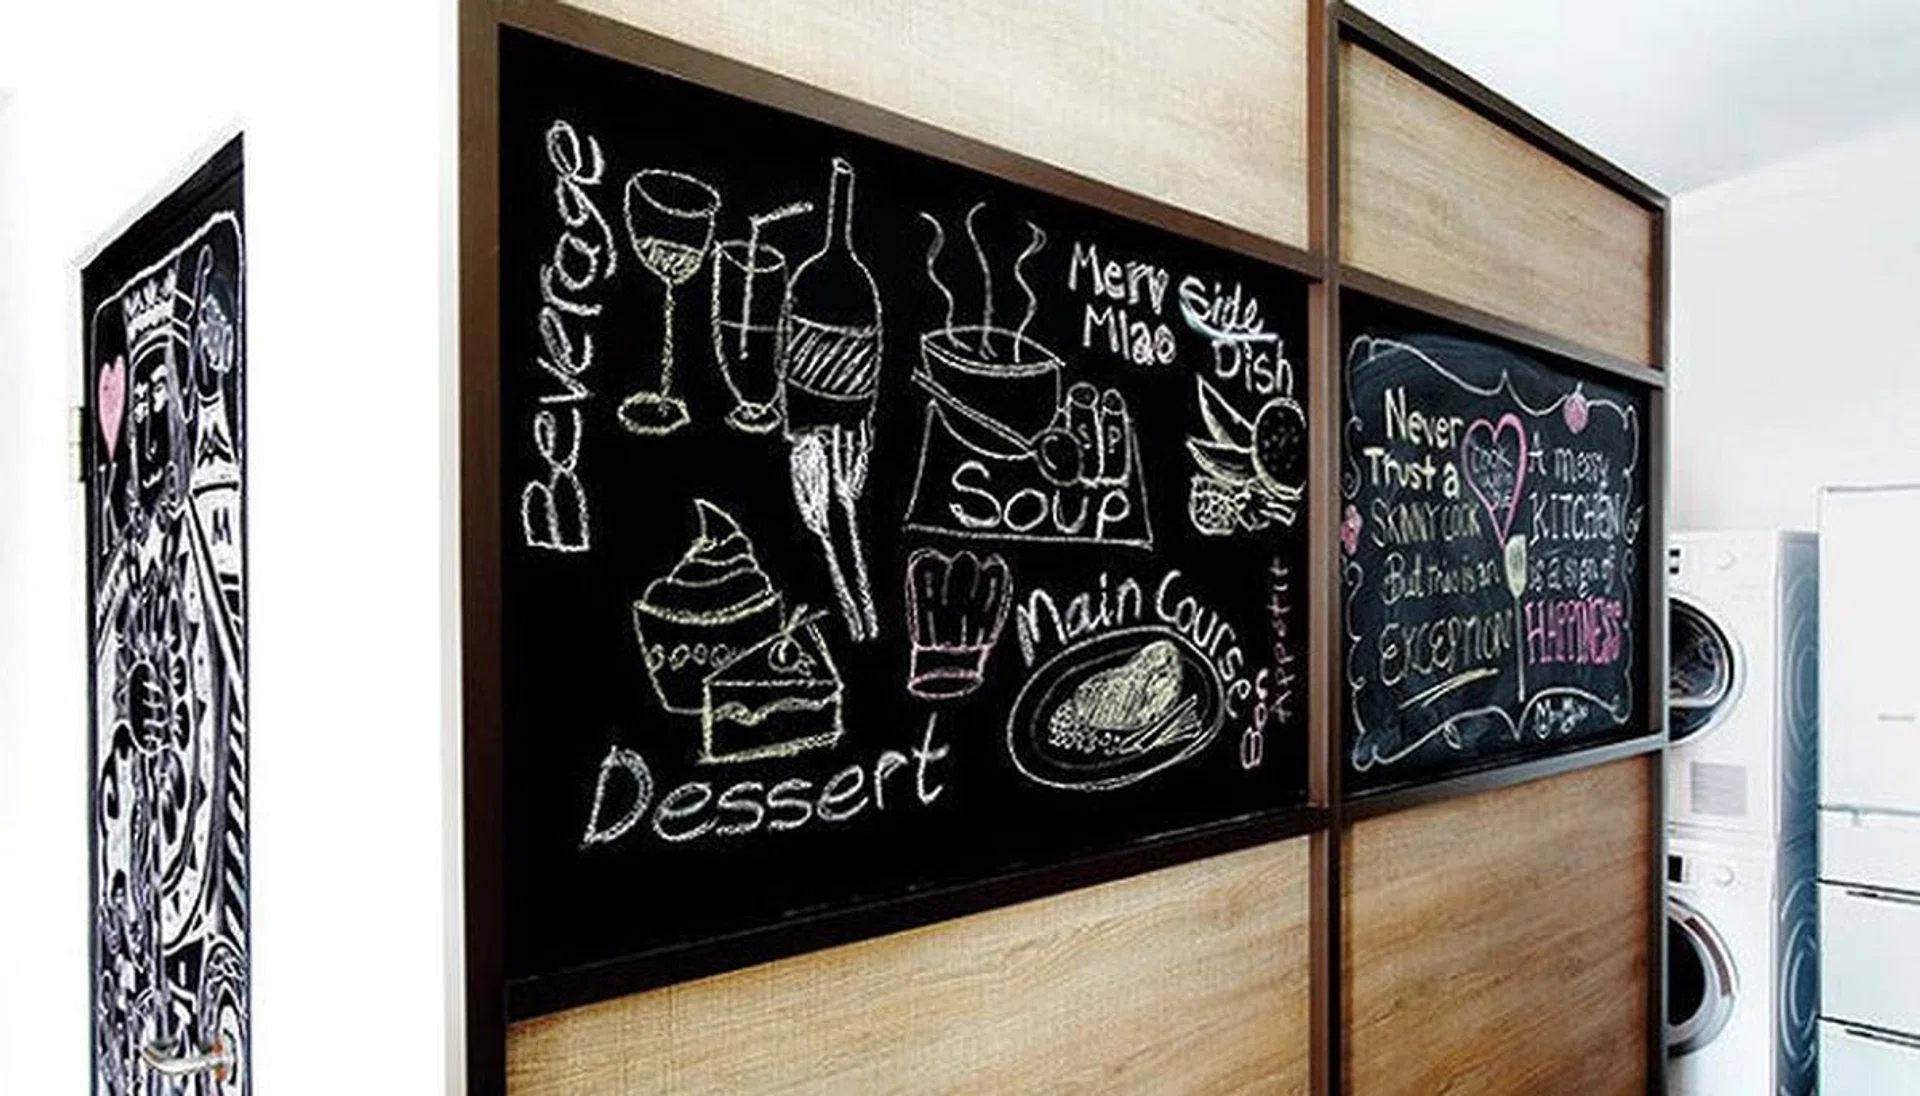 K
Beverage
Merv
Mlao
Side
Dish
S P
Soup
Main Course
Bon
Appetit
Dessert
Never
Trust a
SKINNY COOK
But this is an
EXCEPTION!
A merry
KITCHEN
is a sign of
HAPPINESS